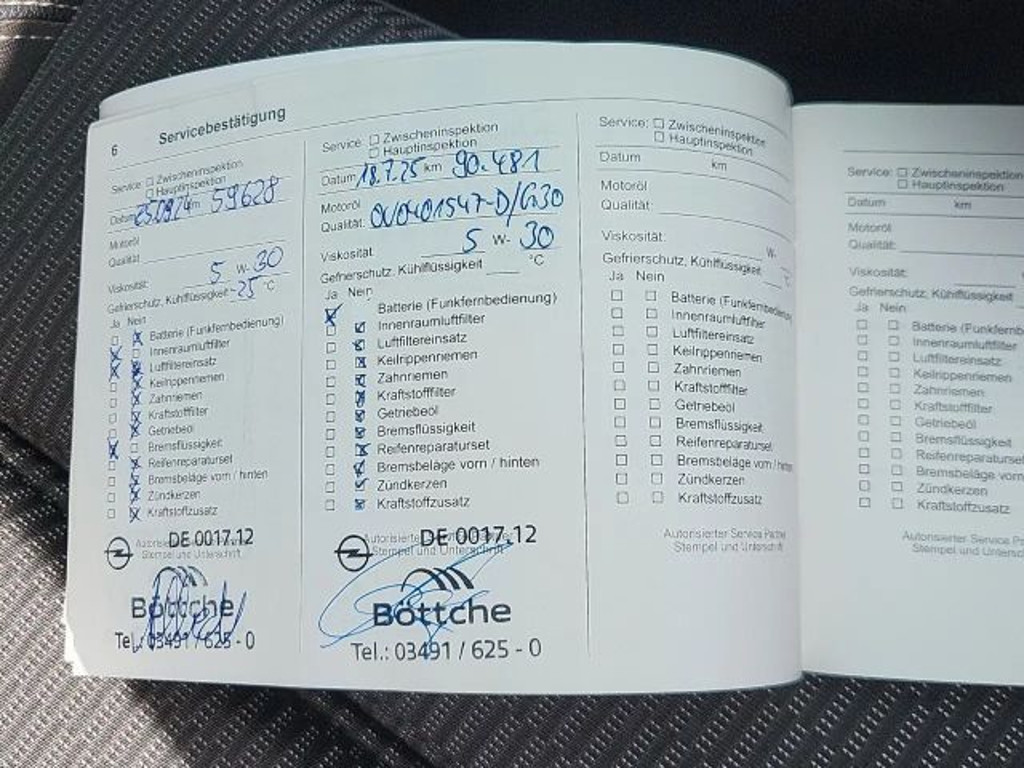 6 Servicebestätigung
Service: ☐ Zwischeninspektion
☐ Hauptinspektion
Datum 25.09.24 km 59628
Motoröl
Qualität:
Viskosität: 5 W- 30
Gefrierschutz, Kühlflüssigkeit -25 °C
Ja Nein
Batterie (Funkfernbedienung)
Innenraumluftfilter
Luftfiltereinsatz
Keilrippenriemen
Zahnriemen
Kraftstofffilter
Getriebeöl
Bremsflüssigkeit
Reifenreparaturset
Bremsbeläge vorn / hinten
Zündkerzen
Kraftstoffzusatz
DE 0017.12
Stempel und Unterschrift
Böttche
Tel.: 03491 / 625 - 0
Service: ☐ Zwischeninspektion
☐ Hauptinspektion
Datum 18.7.25 km 90.481
Motoröl
Qualität: OV0401547-D/G30
Viskosität: 5 W- 30
Gefrierschutz, Kühlflüssigkeit °C
Ja Nein
Batterie (Funkfernbedienung)
Innenraumluftfilter
Luftfiltereinsatz
Keilrippenriemen
Zahnriemen
Kraftstofffilter
Getriebeöl
Bremsflüssigkeit
Reifenreparaturset
Bremsbeläge vorn / hinten
Zündkerzen
Kraftstoffzusatz
DE 0017.12
Stempel und Unterschrift
Böttche
Tel.: 03491 / 625 - 0
Service: ☐ Zwischeninspektion
☐ Hauptinspektion
Datum km
Motoröl
Qualität:
Viskosität: W-
Gefrierschutz, Kühlflüssigkeit °C
Ja Nein
Batterie (Funkfernbedienung)
Innenraumluftfilter
Luftfiltereinsatz
Keilrippenriemen
Zahnriemen
Kraftstofffilter
Getriebeöl
Bremsflüssigkeit
Reifenreparaturset
Bremsbeläge vorn / hinten
Zündkerzen
Kraftstoffzusatz
Autorisierter Service Partner
Stempel und Unterschrift
Service: ☐ Zwischeninspektion
☐ Hauptinspektion
Datum km
Motoröl
Qualität:
Viskosität:
Gefrierschutz, Kühlflüssigkeit
Ja Nein
Batterie (Funkfernb
Innenraumluftfilter
Luftfiltereinsatz
Keilrippenriemen
Zahnriemen
Kraftstofffilter
Getriebeöl
Bremsflüssigkeit
Reifenreparaturset
Bremsbeläge vorn
Zündkerzen
Kraftstoffzusatz
Autorisierter Service Pa
Stempel und Untersc